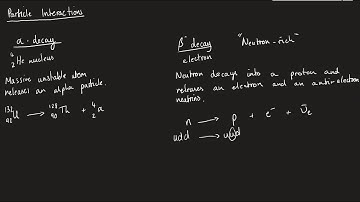 Particle Interactions
α - decay
⁴₂He nucleus
Massive unstable atom
releases an alpha particle.
U → Th + ⁴₂α
β⁻ decay
electron
"Neutron-rich"
Neutron decays into a proton and
releases an electron and an anti-electron
neutrino.
n → p + e⁻ + ν̄ₑ
udd → uud